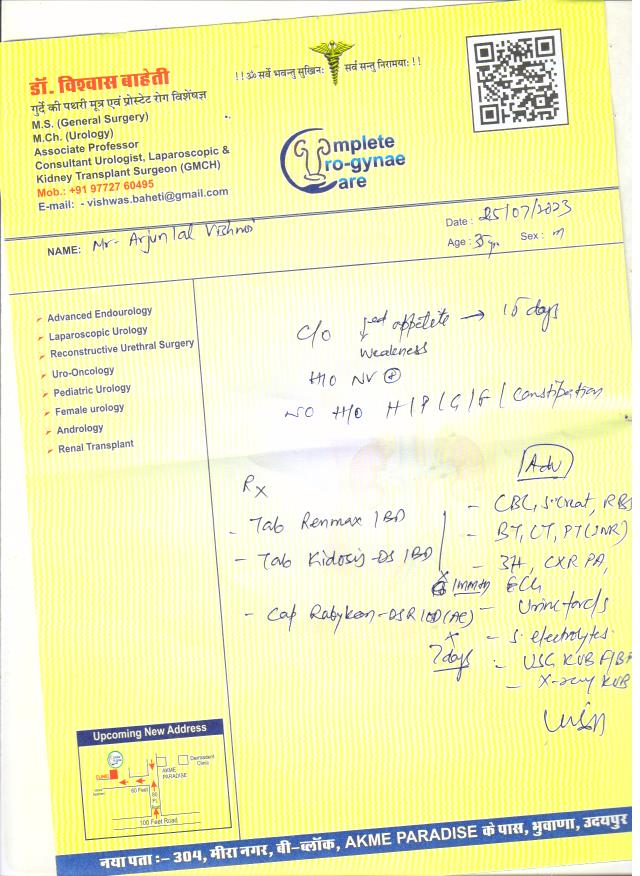 डॉ. विश्वास बाहेती
गुर्दे की पथरी मूत्र एवं प्रोस्टेट रोग विशेषज्ञ
M.S. (General Surgery)
M.Ch. (Urology)
Associate Professor
Consultant Urologist, Laparoscopic &
Kidney Transplant Surgeon (GMCH)
Mob.: +91 97727 60495
E-mail: - vishwas.baheti@gmail.com
!! ॐ सर्वे भवन्तु सुखिनः सर्वे सन्तु निरामयाः !!
Complete
Uro-gynae
Care
NAME: Mr- Arjun lal
Date : 25/07/2023
Age : Sex : m
Advanced Endourology
Laparoscopic Urology
Reconstructive Urethral Surgery
Uro-Oncology
Pediatric Urology
Female urology
Andrology
Renal Transplant
C/O ↓ed appetite → 15 days
weakness
H/O NV ⊕
NO H/O H/P/G/F/ Constipation
Rx
- Tab Renmax 1 BD
- Tab Kidosis-DS 1 BD
x 1 month
- Cap Rabyken-DSR 1 OD (AC)
x
7 days
Adv
- CBC, S. Creat, RBS
- BT, CT, PT (INR)
- 3H, CXR PA,
ECG
- Urine for c/s
- S. electrolytes.
- USG KUB
- X-ray KUB
Upcoming New Address
CLINIC
AKME
PARADISE
Clinic
60 Feet
100 Feet Road
नया पता :– 304, मीरा नगर, बी-ब्लॉक, AKME PARADISE के पास, भुवाणा, उदयपुर